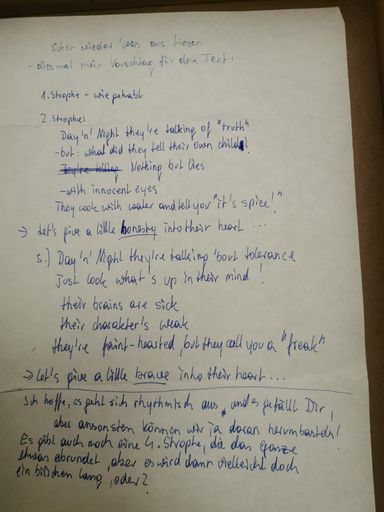 Schon wieder 'was aus Lienen
- diesmal mein Vorschlag für den Text:
1. Strophe - wie gehabt
2. Strophe:
Day 'n' Night they're talking of "truth"
- but: what did they tell their own child
They're telling Nothing but lies
- with innocent eyes
They cook with water and tell you "it's spice!"
→ Let's give a little honesty into their heart ...
3.) Day 'n' Night they're talking 'bout tolerance
Just look what's up in their mind!
their brains are sick
their charakter's weak
they're faint-hearted, but they call you a "freak"
→ Let's give a little brave into their heart...
Ich hoffe, es geht sich rhythmisch aus, und es gefällt Dir,
aber ansonsten können wir ja daran herumbasteln!
Es gibt auch noch eine 4. Strophe, die das ganze
etwas abrundet, aber es wird dann vielleicht doch
ein bißchen lang, oder?